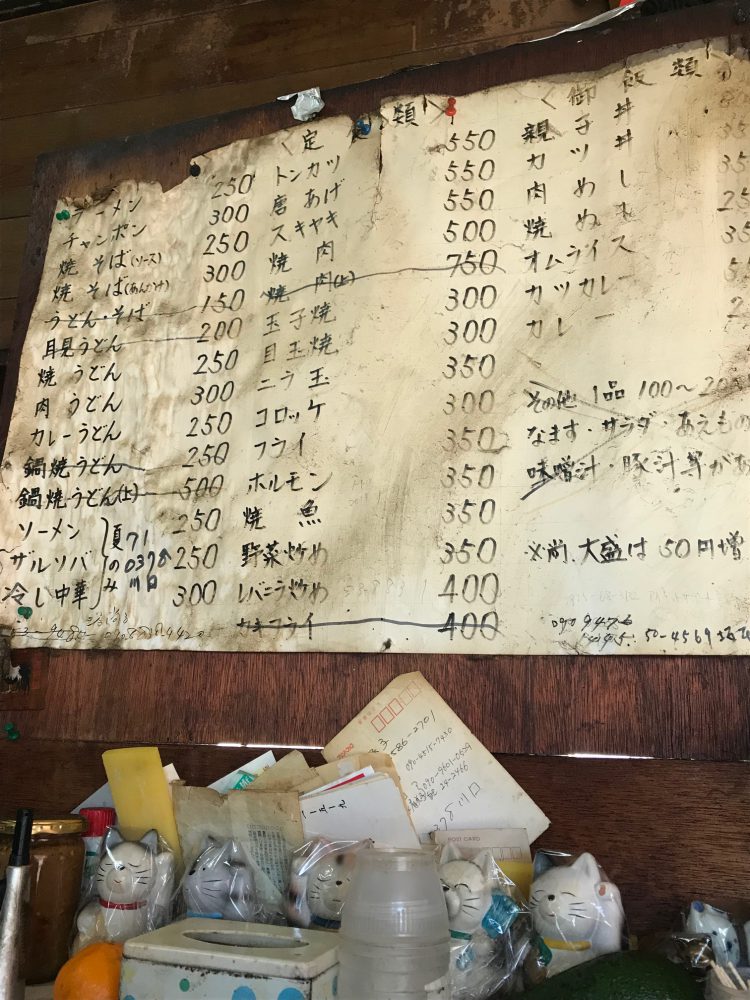 ラーメン 250
チャンポン 300
焼そば(ソース) 250
焼そば(あんかけ) 300
うどん・そば 150
月見うどん 200
焼うどん 250
肉うどん 300
カレーうどん 250
鍋焼うどん 250
鍋焼うどん(上) 500
ソーメン 250
ザルソバ 250
冷し中華 300
夏
の
み
〈定食類〉
トンカツ 550
唐あげ 550
スキヤキ 550
焼肉 500
焼肉(上) 750
玉子焼 300
目玉焼 300
ニラ玉 350
コロッケ 300
フライ 350
ホルモン 350
焼魚 350
野菜炒め 350
レバニラ炒め 400
カキフライ 400
〈御飯類〉
親子丼
カツ丼
肉めし
焼めし
オムライス
カツカレー
カレー
その他 1品 100〜20
なます・サラダ・あえもの
味噌汁・豚汁等があ
※尚、大盛は50円増
586-2701
090-4515-7430
090-9601-0629
24-2466
川口
POST CARD